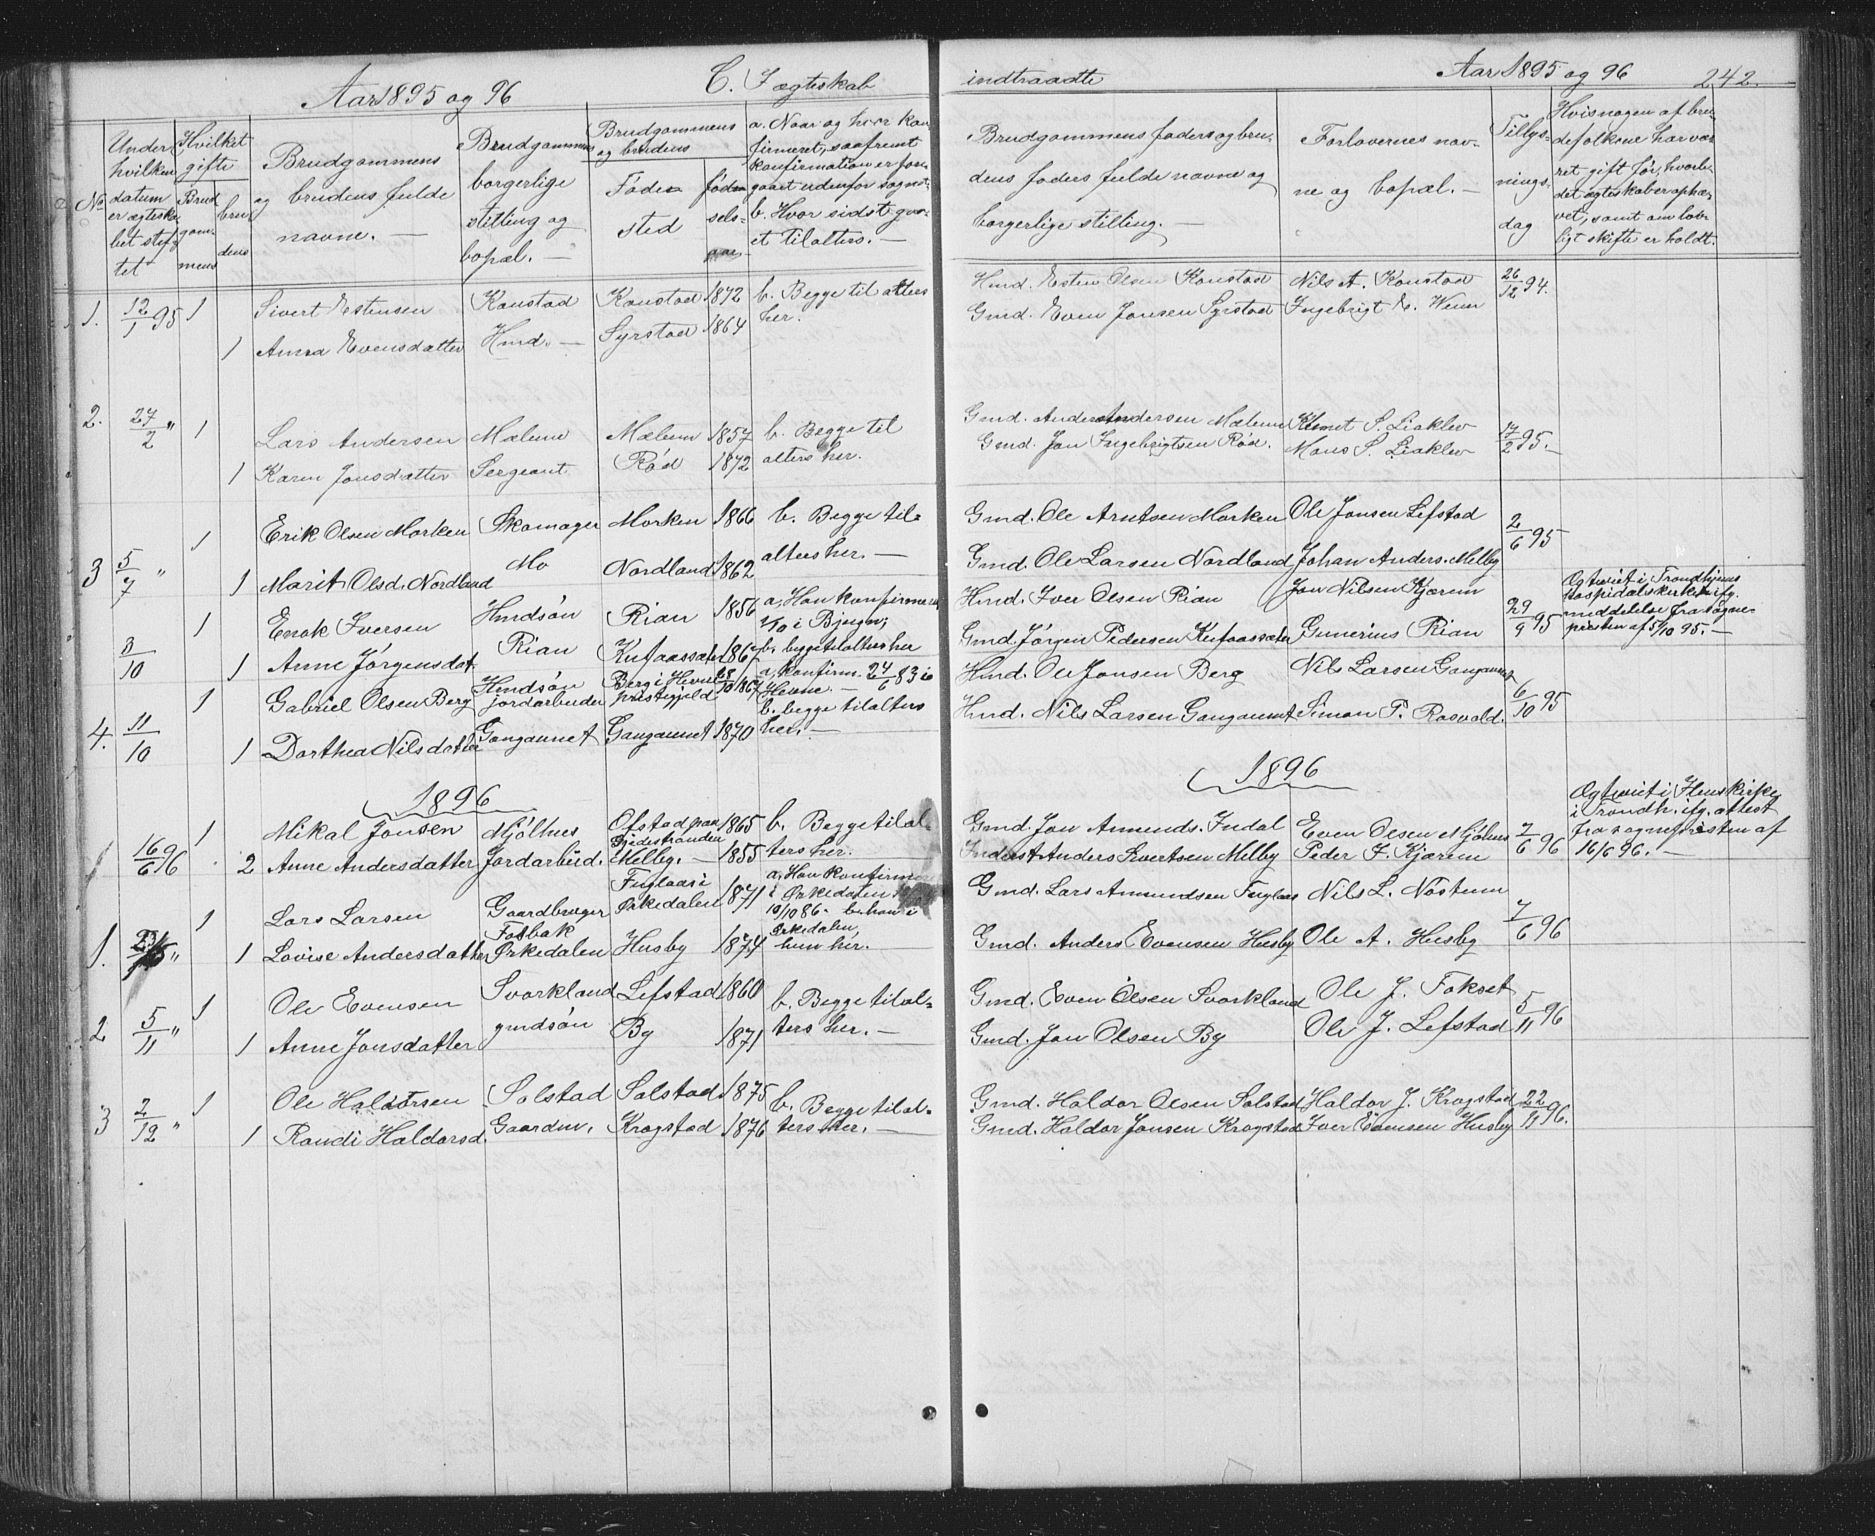 Aar 1895 og 96
C. I ægteskab
indtraadte
Aar 1895 og 96
242.
No
Under hvilken datum er ægteska-bet stif-tet
Hvilket gifte
Brud-gom-mens
bru-dens
Brudgommens og brudens fulde navne. —
Brudgommens borgerlige stilling og bopæl. —
Brudgommens og brudens
Føde-sted
fødsels-aar
a. Naar og hvor kon-firmeret, saafremt konfirmation er fore-gaaet udenfor sognet
b. Hvor sidst gaa-et tilalters. —
Brudgommens faders og bru-dens faders fulde navne og borgerlige stilling. —
Forlovernes nav-ne og bopæl. —
Tillys-nings-dag
Hvis nogen af bru-defolkene har væ-ret gift før, hvorle-det ægteskab er ophæ-vet, samt om lov-ligt skifte er holdt.
1. 12/1 95 1 Sivert Estensen Konstad Konstad 1872 b. Begge til alters her. Hmd. Esten Olsen Konstad Nils A. Konstad 26/12 94.
1 Anna Evensdatter Hmd. — Syrstad 1864 Gmd. Even Jonsen Syrstad Ingebrigt E. Wenn
2. 27/2 " 1 Lars Andersen Mælum Mælum 1857 b. Begge til alters her. Gmd. Anders Andersen Mælum Knut S. Liaklev 17/2 95. —
1 Karen Jonsdatter Sergeant Rød 1872 Gmd. Jon Ingebrigtsen Rød. Mons S. Liaklev
3 5/7 " 1 Erik Olsen Morken Skomager Morken 1866 b. Begge til-alters her. — Gmd. Ole Arntsen Morken Ole Jonsen Lefstad 2/6 95
1 Marit Olsd. Nordland Mo Nordland 1862 Gmd. Ole Larsen Nordland Johan Anders. Melby
3/10 1 Enok Iversen Hmdsøn Rian Rian 1856 a. Han konfirmeret i Bjugn, b. begge tilalters her Hmd. Iver Olsen Rian Jon Nilsen Kjærem 29/9 95 Ogtviet i Trondhjems Hospidalskirke ifg. meddelelse fra sogne-presten af 5/10 95. —
1 Anne Jørgensdat. Knfaassæter 1867 Gmd. Jørgen Pedersen Knfaassæter Gunerius Rian
4. 11/10 1 Gabriel Olsen Berg Hmdsøn jordarbeider Berg i Hevne prestegjeld 28/10 1867 a. konfirm. 24/6 83 i Hevne. — b. begge tilalters her. — Hmd. Ole Jonsen Berg Nils Larsen Gangaunet 6/10 95
1 Dorthea Nilsdatter Gangaunet Gangaunet 1870 Hmd. Nils Larsen Gangaunet Simon P. Rosvold.
1896
1896
16/6 96 1 Mikal Jonsen Mjølhus Ofstad paa 1865 b. Begge tilal-ters her. Gmd. Jon Amunds. Indal Even Olsen Mjølhus 7/6 96 Ogtviet i Hans kirke i Trondh. ifg. attest fra sognepresten af 16/6 96. —
2 Anne Andersdatter Jordarbeid. Melby. — 1855 Inderst Anders Sivertsen Melby Peder J. Kjærem
1. " 1 Lars Larsen Gaardbruger Fosbak Orkedalen Fuglaas i Orkedalen 1871 a. Han konfirm. i Orkedalen 10/10 86. b. han i Orkedalen, hun her. Gmd. Lars Amundsen Fuglaas Nils L. Nøstum 7/6 96
1 Lovise Andersdatter Husby 1874 Gmd. Anders Evensen Husby Ole A. Husby
2 5/11 " 1 Ole Evensen Svorkland gmdsøn Lefstad 1860 b. Begge tilal-ters her. — Gmd. Even Olsen Svorkland Ole J. Fokset 5/11 96
1 Anne Jonsdatter By 1871 Gmd. Jon Olsen By Ole J. Lefstad
3 2/12 " 1 Ole Haldorsen Solstad Solstad 1875 b. Begge tilal-ters her. — Gmd. Haldor Olsen Solstad Haldor J. Krogstad 22/11 96.
1 Randi Haldorsd. Gaardm. Krogstad 1876 Gmd. Haldor Jonsen Krogstad Iver Evensen Husby